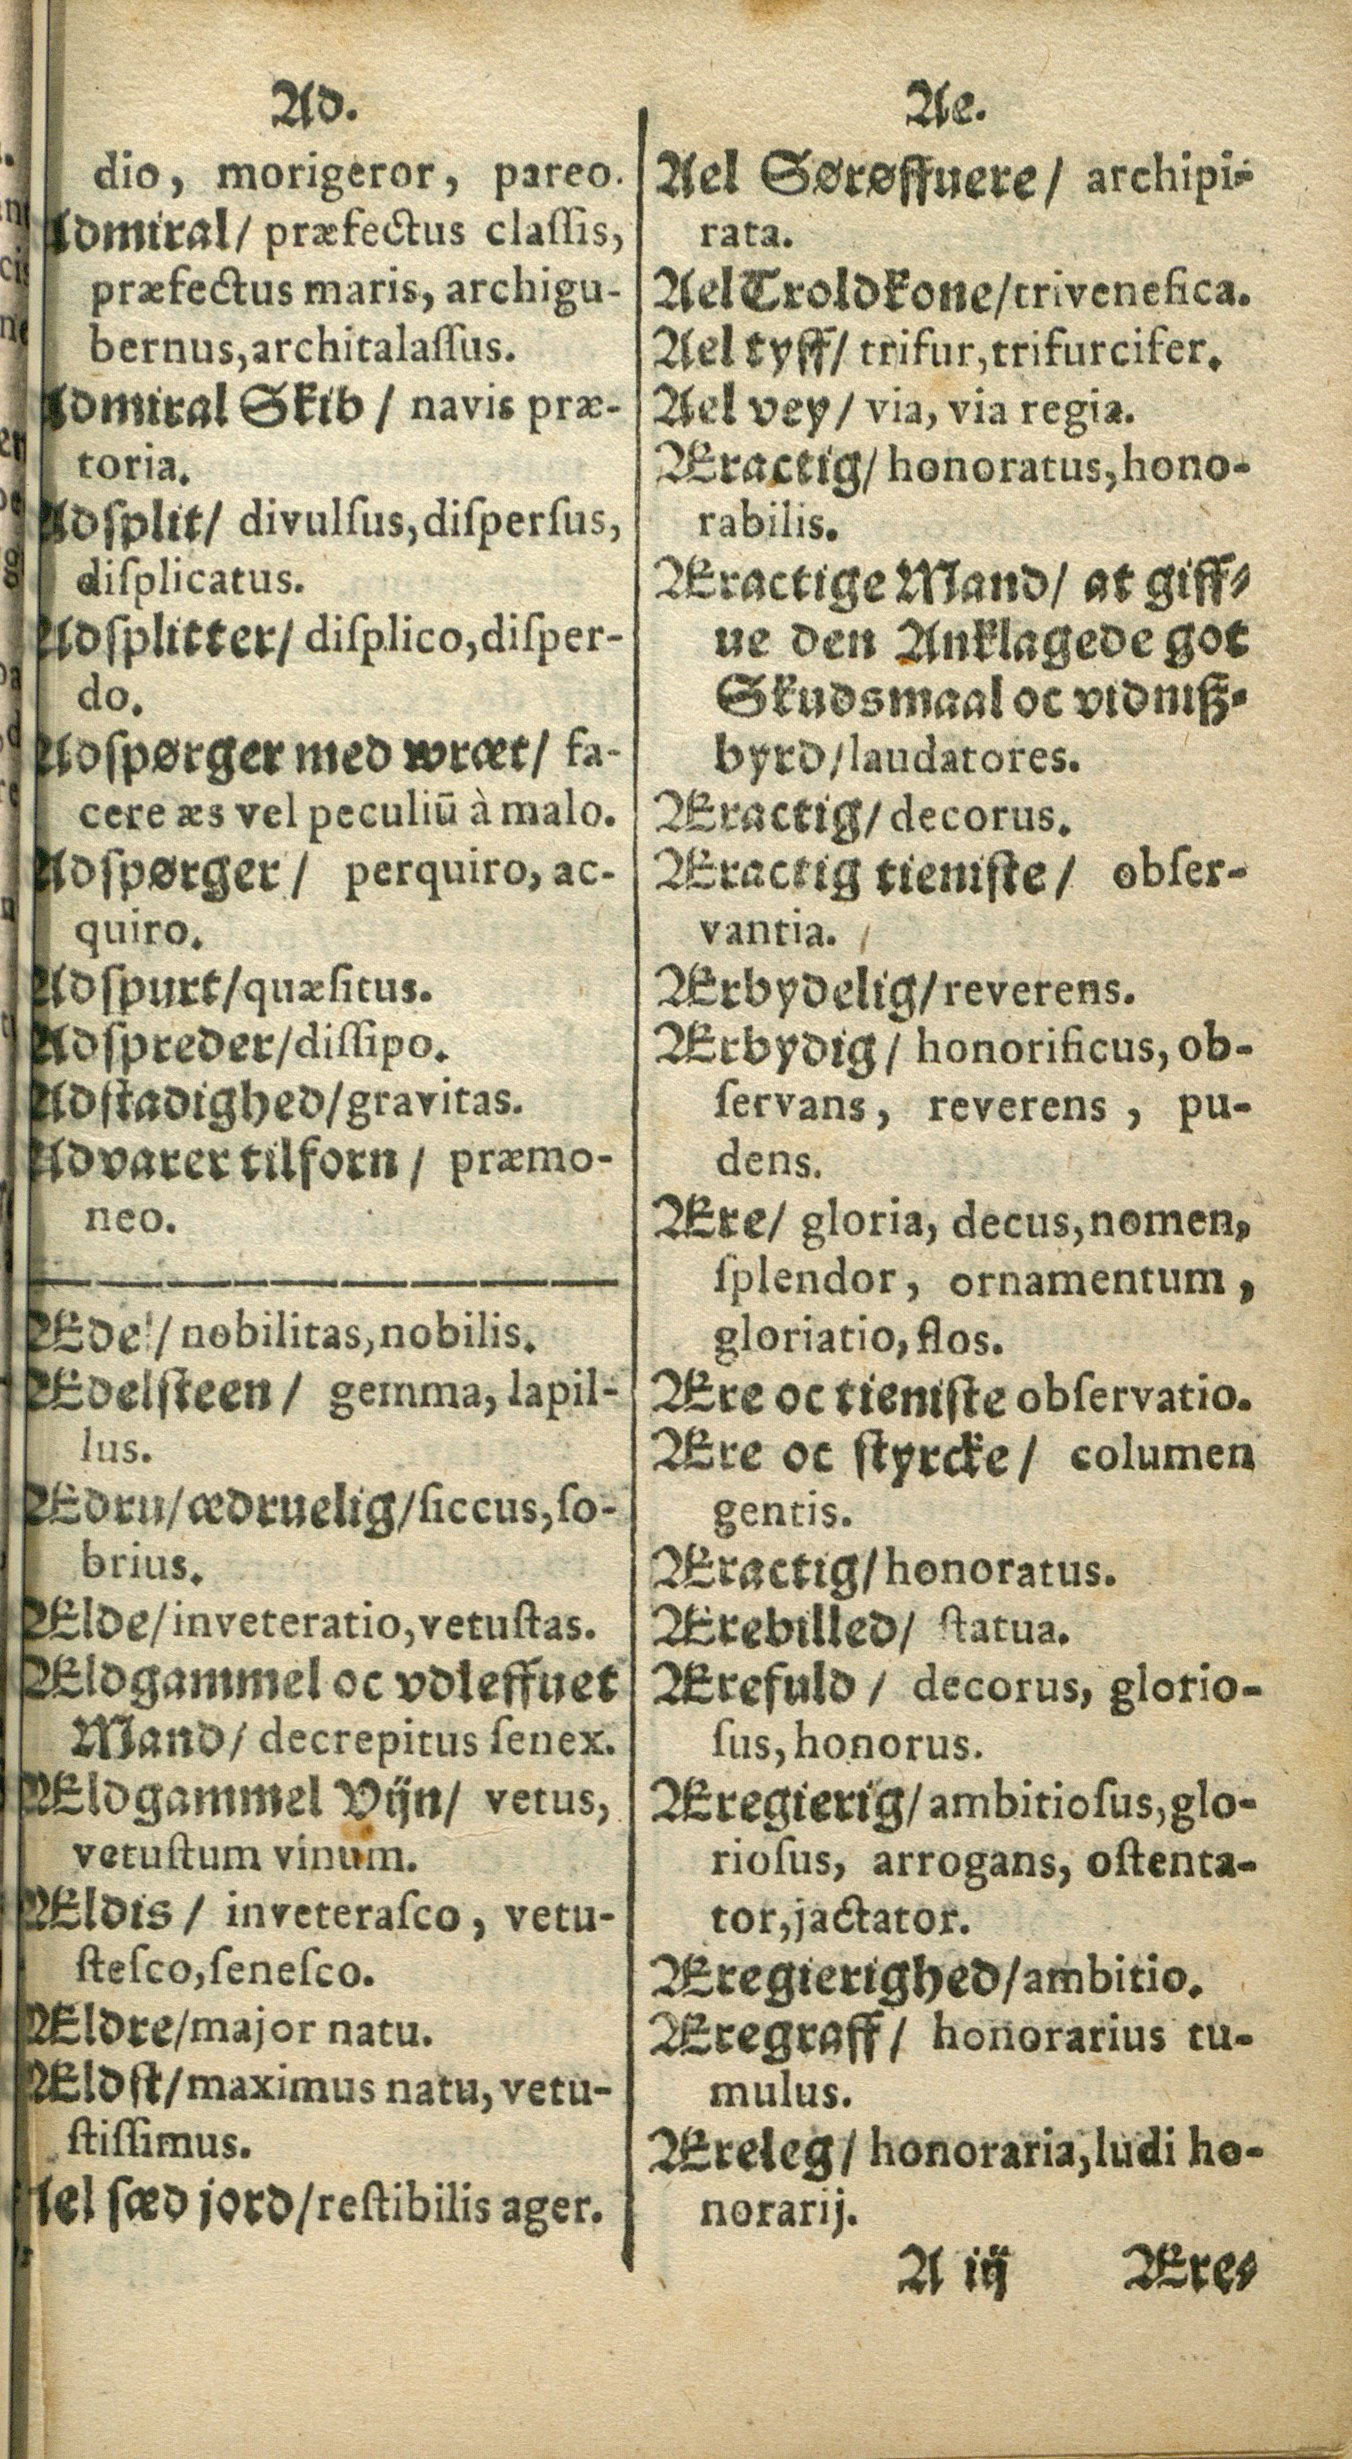 Ad.
dio, morigeror, pareo.
Admiral/ præfectus classis,
præfectus maris, archigu-
bernus, architalassus.
Admiral Skib / navis præ-
toria.
Adsplit/ divulsus, dispersus,
displicatus.
Adsplitter/ displico, disper-
do.
Adspørger med wræt/ fa-
cere æs vel peculiū à malo.
Adspørger / perquiro, ac-
quiro.
Adspurt/quæsitus.
Adspreder/dissipo.
Adstadighed/gravitas.
Advarer tilforn / præmo-
neo.
Ædel/ nobilitas, nobilis.
Ædelsteen / gemma, lapil-
lus.
Ædru/ædruelig/siccus, so-
brius.
Ælde/inveteratio, vetustas.
Ældgammel oc vdleffuet
Mand/ decrepitus senex.
Ældgammel Vijn/ vetus,
vetustum vinum.
Ældis / inveterasco, vetu-
stesco, senesco.
Ældre/major natu.
Ældst/maximus natu, vetu-
stissimus.
Ael sæd jord/restibilis ager.
Ae.
Ael Sørøffuere/ archipi-
rata.
Ael Troldkone/trivenefica.
Ael tyff/ trifur, trifurcifer.
Ael vey/ via, via regia.
Æractig/ honoratus, hono-
rabilis.
Æractige Mand/ at giff-
ue den Anklagede got
Skudsmaal oc vidnisz-
byrd/laudatores.
Æractig/ decorus.
Æractig tieniste/ obser-
vantia.
Ærbydelig/reverens.
Ærbydig/ honorificus, ob-
servans, reverens, pu-
dens.
Ære/ gloria, decus, nomen,
splendor, ornamentum,
gloriatio, flos.
Ære oc tieniste observatio.
Ære oc styrcke/ columen
gentis.
Æractig/honoratus.
Ærebilled/ statua.
Ærefuld / decorus, glorio-
sus, honorus.
Æregierig/ ambitiosus, glo-
riosus, arrogans, ostenta-
tor, jactator.
Æregierighed/ambitio.
Æregraff/ honorarius tu-
mulus.
Æreleg/ honoraria, ludi ho-
norarij.
A iij Ære-